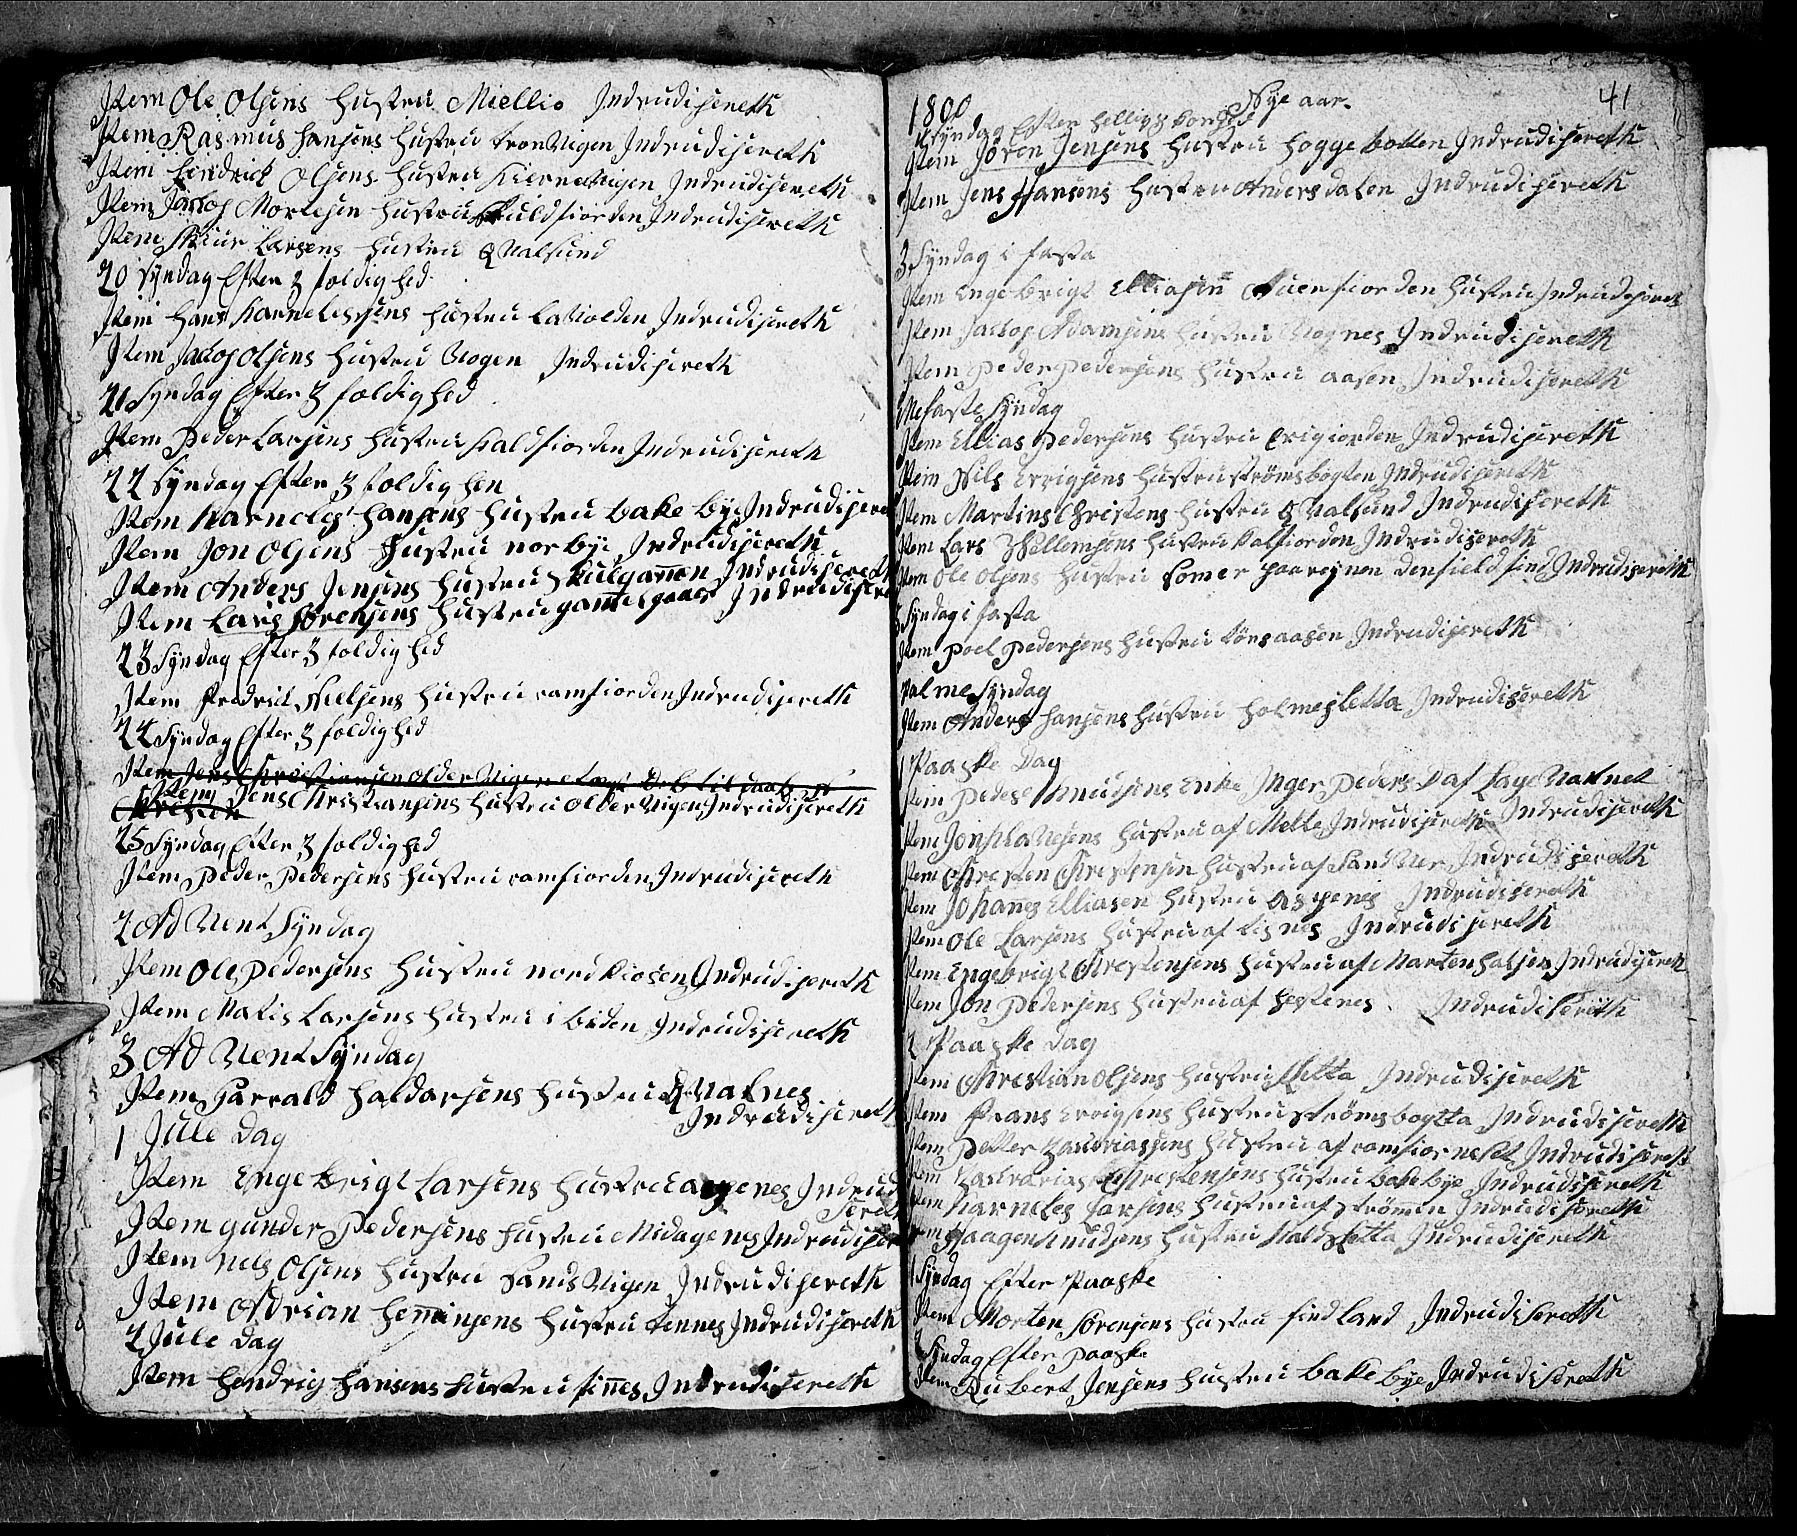 Item Ole Olsens Hustru Miellio Indrudisereth
Item Rasmus Hansens Hustru tronVigen Indrudisereth
Item Hendrick Olsens Hustru KierneVigen Indrudisereth
Item Jacob Mortesen Hustru Indrudisereth
Item Larsens Hustru QValsund
20 Syndag Efter 3 foldighed
Item Hans Karnelessens Hustru LaVolden Indrudisereth
Item Jacob Olsens Hustru Vogen Indrudisereth
21 Syndag Efter 3 foldighed
Item Peder Larsens Hustru Kaldfiorden Indrudisereth
22 Syndag Efter 3 foldighed
Item Karneles Hansens Hustru bakebye Indrudisere
Item Jon Olsens Hustru norbye Indrudisereth
Item Anders Jensens Hustru Skulgammen Indrudisereth
Item Lars Sørensens Hustru gammelgaar Indrudisere
23 Syndag Efter 3 foldighed
Item Fredrick Nielsens Hustru ramfiorden Indrudisereth
24 Syndag Efter 3 foldighed
Item Jens Christiansen olderVigen
Item Jens Christiansens Hustru olderVigen Indrudisereth
25 Syndag Efter 3 foldighed
Item Peder Pedersens Hustru ramfiorden Indrudisereth
2 AdVent Syndag
Item Ole Pedersens Hustru nordkiosen Indrudisereth
Item Matis Larsens Hustru i biden Indrudisereth
3 AdVent Syndag
Item Harrald Haldorsens Hustru QValnes
Indrudisereth
1 Jule Dag
Item Engebrigt Larsens Hustru aspenes Indrudi
sereth
Item gunder Pedersens Hustru Midagenes Indrudiser
Item Nels Olsens Hustru SandsVigen Indrudisereth
Item Adrian Henningsens Hustru tennes Indrudisereth
2 Jule Dag
Item Hendrig Hansens Hustru finnes Indrudisereth
41
1800 Nye aar
Syndag Efter Hellig 3 Konger
Item Jøren Jensens Hustru Hoggebotten Indrudisereth
Item Jens Hansens Hustru Andersdalen Indrudisereth
3 Syndag i fasta
Item Engebrigt Elliasen Hustru Indrudisereth
Item Jacob Adamsens Hustru Vognes Indrudisereth
Item Peder Pedersens Hustru aasen Indrudisereth
Mefaste Syndag
Item Ellias Pedersens Hustru Indrudisereth
Item Nils Errigsens Hustru strømsbogten Indrudisereth
Item Martins Christens Hustru QValsund Indrudisereth
Item Lars Willemsens Hustru Kalfiorden Indrudisereth
Item Ole Olsens Hustru Indrudisereth
Syndag i fasta
Item Poel Pedersens Hustru tønsaasen Indrudisereth
Palme Syndag
Item Anders Hansens Hustru Holmesletta Indrudisereth
1 Paaske Dag
Item Peder Knudsens Enke Inger Peders D af
Item Jon Hustru af Melte Indrudisereth Indrudisereth
Item Chresten Chrestensen Hustru af Indrudisereth
Item Johanes Elliasen Hustru aspenes Indrudisereth
Item Ole Larsens Hustru af tisnes Indrudisereth
Item Engebrigt Chrestensens Hustru af Martenhalsen Indrudisereth
Item Jon Pedersens Hustru af Hestenes Indrudisereth
2 Paaske Dag
Item Chrestian Olsens Hustru Sletta Indrudisereth
Item Frans Errigsens Hustru strømsbogtta Indrudisereth
Item Petter Zackriassens Hustru af ramfiorneset Indrudisereth
Item Zackrarias Chrestensens Hustru bakebye Indrudisereth
Item Karneles Larsens Hustru af strømen Indrudisereth
Item Haagen Knudsens Hustru Kaldsletta Indrudisereth
1 Syndag Efter Paaske
Item Morten Sørensens Hustru findland Indrudisereth
2 Syndag Efter Paaske
Item Rubert Jensens Hustru bakebye Indrudisereth